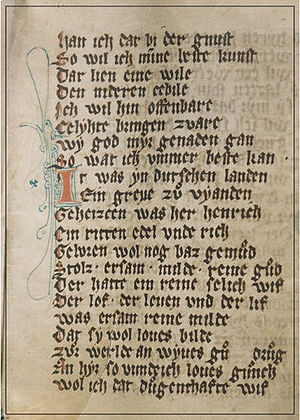 Han ich dar bi der gnust
So wil ich mine beste kunst
Dar lien eine wile
Den nideren
Ich wil hin offenbare
bringen zware
Wy god myr genaden gan
So war ich ummer beste kan
Ir was yn dutschen landen
Ein greve zu vyanden
Geheizen was her henrich
Ein ritter edel unde rich
Geboren wol nog baz gemud
Stolz · ersam · milde · reine gud
Der hatte ein reine selich wif
Der lof · der leven und der lif
was ersam reine milde
Dat sy wol loves bilde
zur werlde an wyves
An hyr so vindich loves
wol ich dat dugenthafte wif